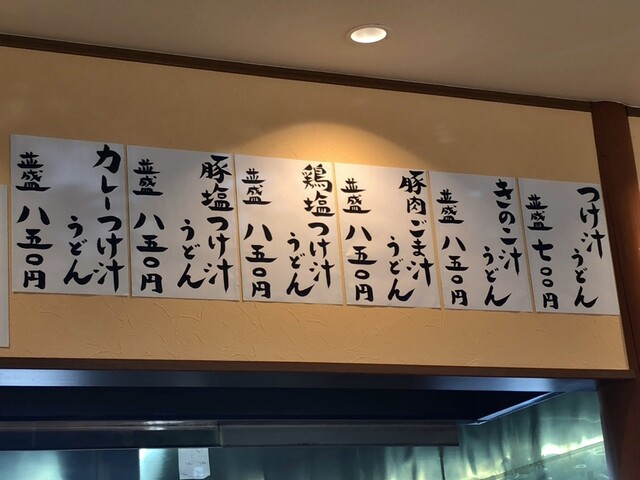 つけ汁
うどん
並盛 七〇〇円
きのこ汁
うどん
並盛 八五〇円
豚肉ごま汁
うどん
並盛 八五〇円
鶏塩つけ汁
うどん
並盛 八五〇円
豚塩つけ汁
うどん
並盛 八五〇円
カレーつけ汁
うどん
並盛 八五〇円